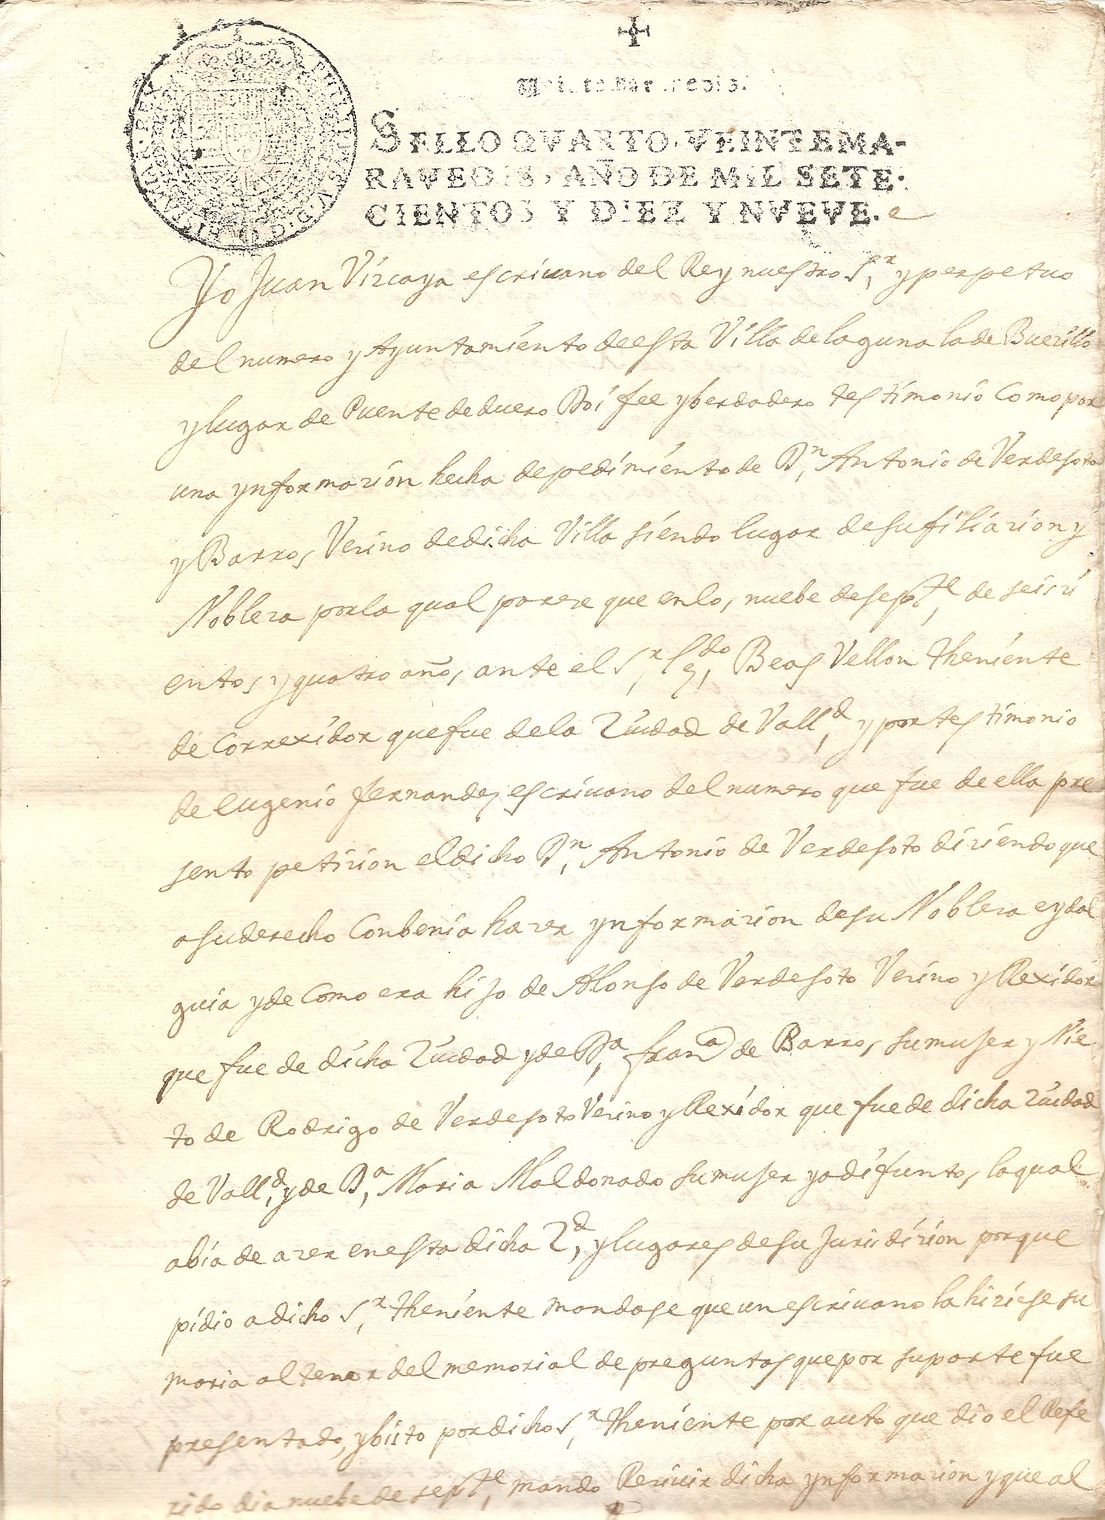 SELLO QVARTO, VEINTE MA-
RAVEDIS, AÑO DE MIL SETE-
CIENTOS Y DIEZ Y NVEVE.
Yo Juan Vizcaya escriuano del Rey nuestro S.r y perpetuo
del numero y Ayuntamiento de esta Villa de laguna la de
y lugar de Puente de duero Doi fee y berdadero testimonio Como por
una ynformazion hecha de pedimiento de D.n Antonio de Verdesoto
y Barros Vezino de dicha Villa siendo lugar de su filiazion y
Nobleza por la qual pareze que en los nuebe de sep.te de seisci
entos y quatro años ante el S.r Ldo Beas Vellon Theniente
de Correxidor que fue de la Ziudad de Vall.d y por testimonio
de eugenio fernandez escriuano del numero que fue de ella pre
sento petizion el dicho D.n Antonio de Verdesoto diziendo que
a su derecho Conbenia hazer ynformazion de su Nobleza e ydal
guia y de Como era hijo de Alonso de Verdesoto Vezino y Rexidor
que fue de dicha Ziudad y de D.a fran.ca de Barros su muger y Nie
to de Rodrigo de Verdesoto Vezino y Rexidor que fue de dicha Ziudad
de Vall.d y de D.a Maria Maldonado su muger ya difuntos la qual
abia de azer en esta dicha Z.d y lugares de su Jurisdizion porque
pidio a dicho S.r Theniente mandase que un escriuano la hiziese su
maria al tenor del memorial de preguntas que por su parte fue
presentado, y bisto por dicho S.r Theniente por auto que dio el Refe
rido dia nuebe de sep.te mando Reziuir dicha ynformazion y que al